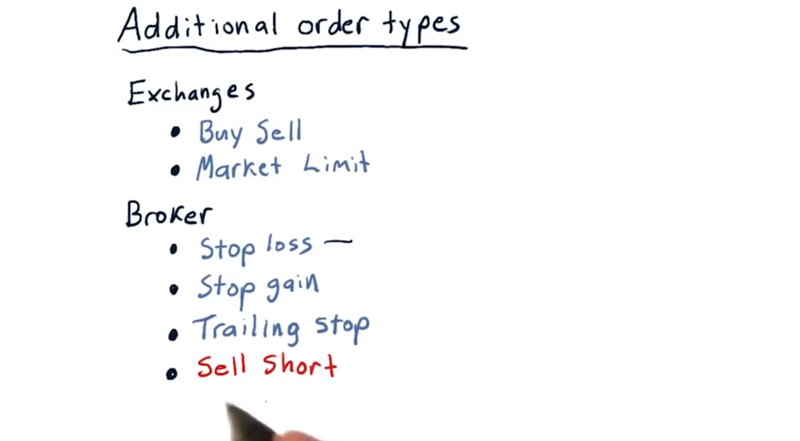 Additional order types
Exchanges
• Buy Sell
• Market Limit
Broker
• Stop loss —
• Stop gain
• Trailing stop
• Sell Short